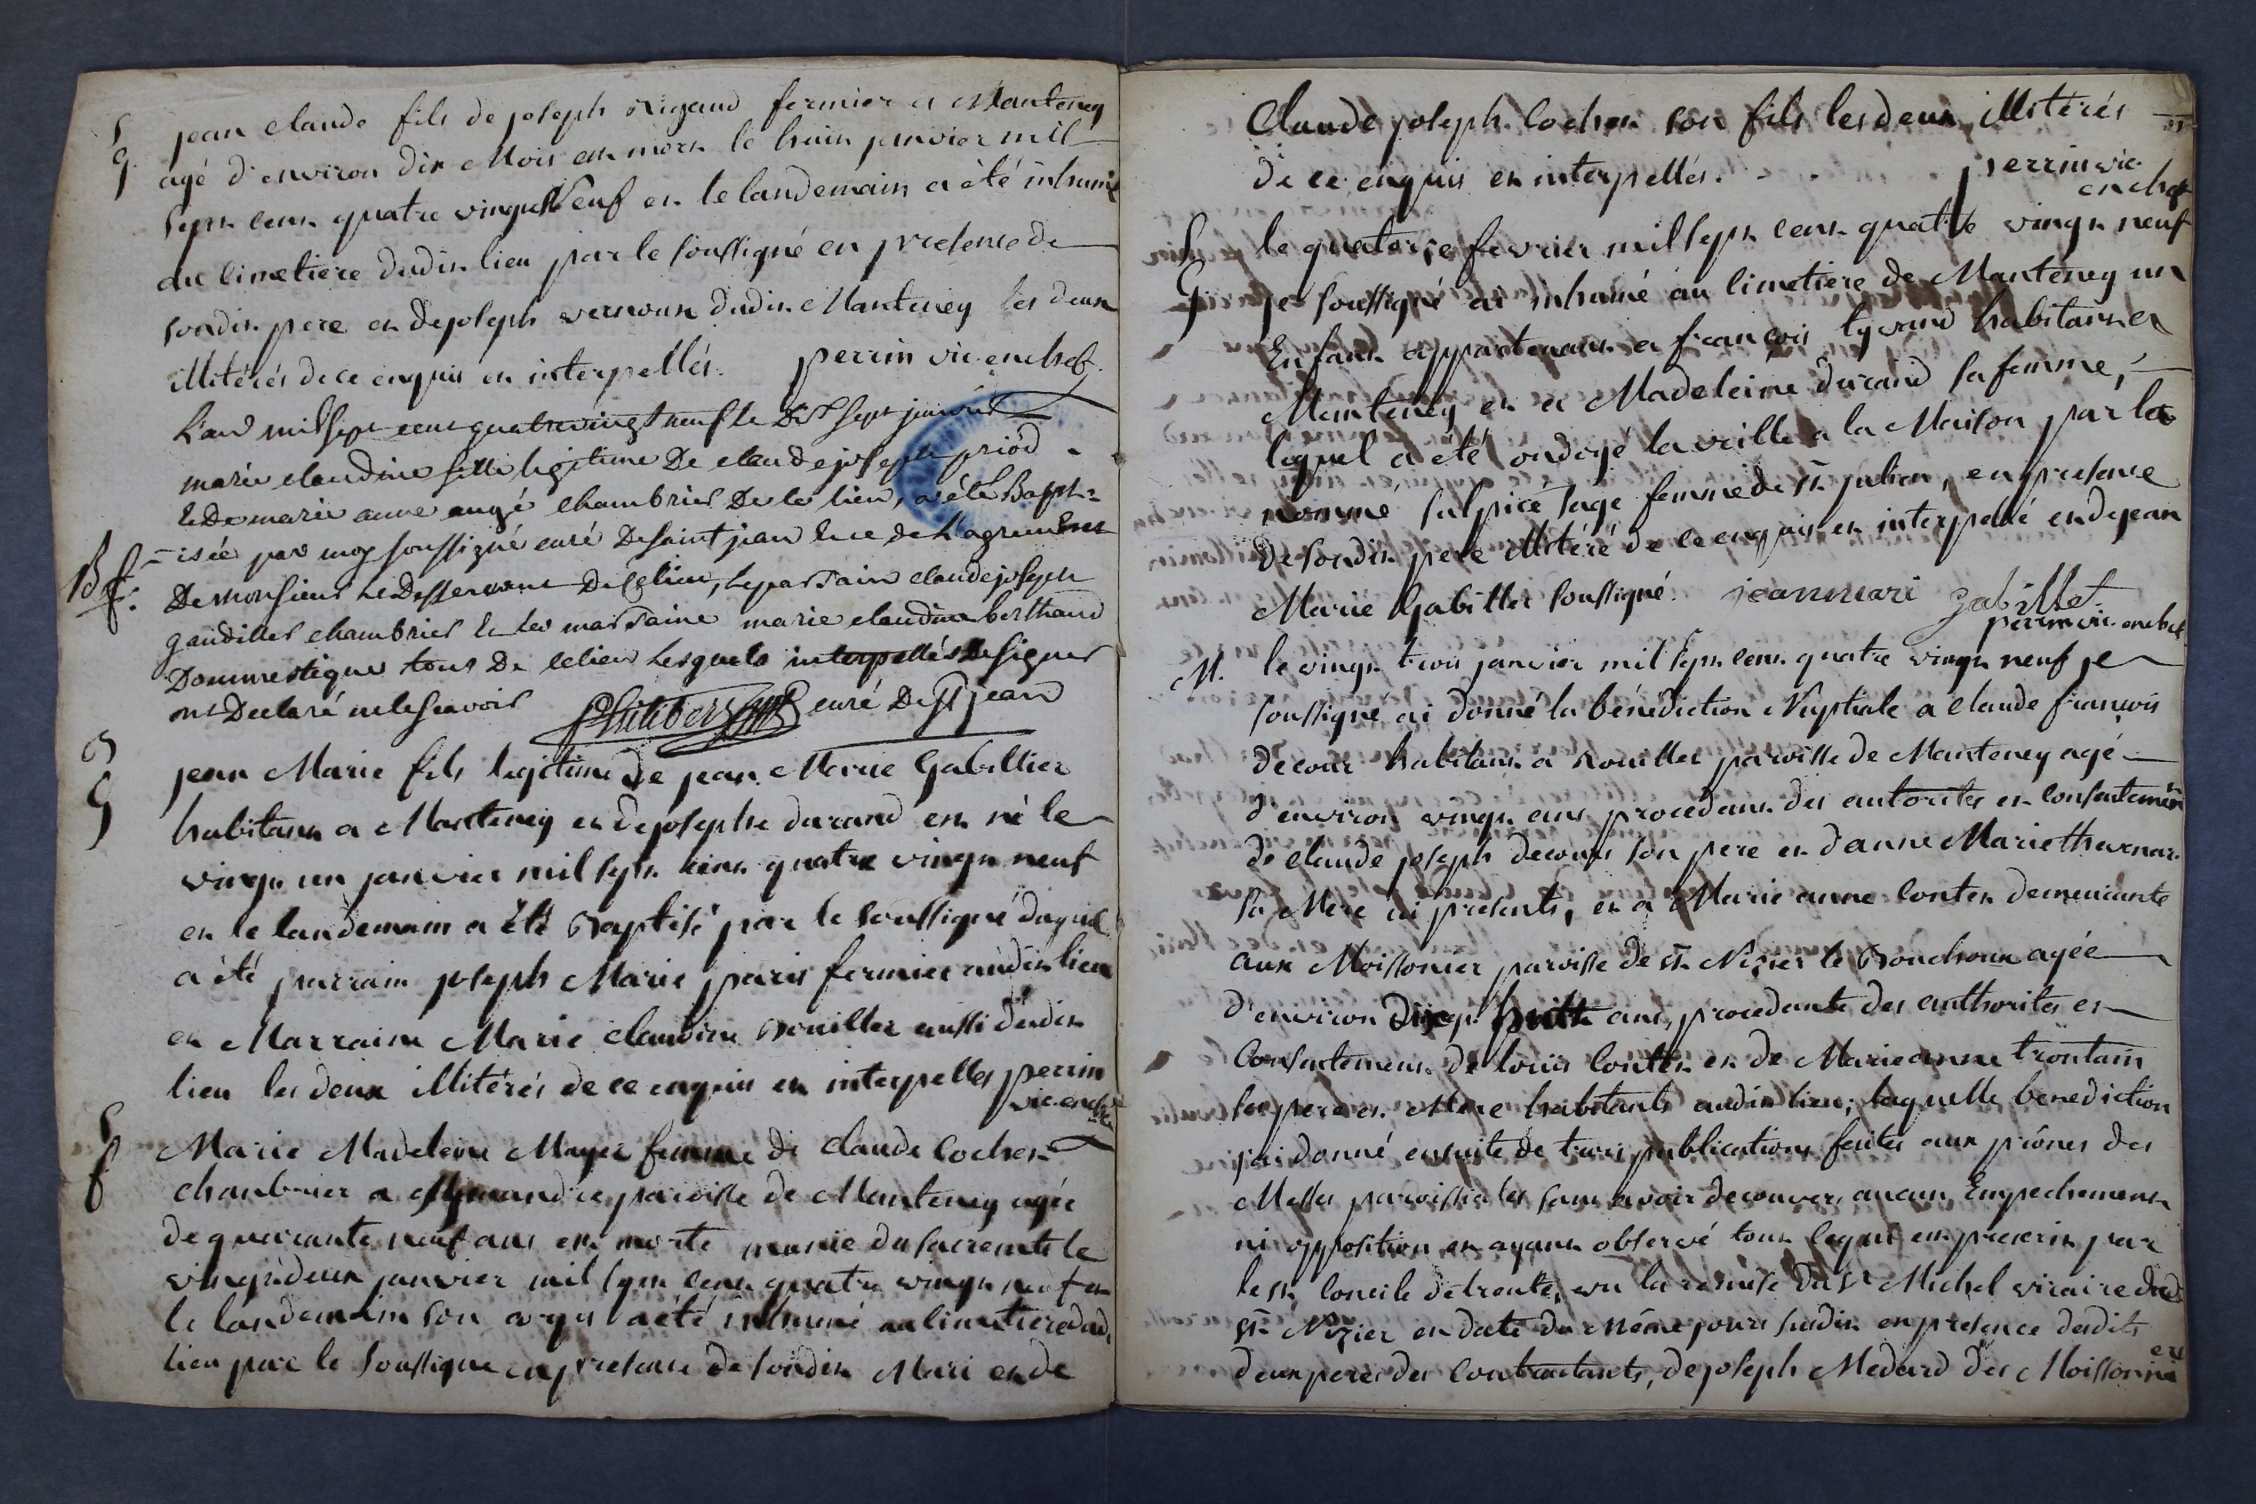 S
G.
jean claude fils de joseph Rigaud fermier a Manteney
agé d'environ dix Mois est mort le huit janvier mil
sept cent quatre vingt Neuf et le landemain a été inhumé
au cimetiere dudit lieu par le soussigné en presence de
sondit pere et de joseph vernoux dudit Manteney les deux
illitérés de ce enquis et interpellés. perrin vic. en chef.
L'an mil sept cent quatre vingt neuf le dix sept janvier
marie claudine fille legitime De claude joseph priod
& De marie anne augé chambrier De ce lieu, a été Bapt=
Bf.
=isée par moy soussigné curé De saint jean & ce de L'agrement
De monsieur Le Desservant De ce lieu, le parrain claude joseph
gaudillet chambrier & la marraine marie claudine berthaud
Dommestique tous De ce lieu Lesquels interpellés De signer
ont Declaré ne le scavoir Philibert curé De st jean
B
G
jean Marie fils legitime de jean Marie Gabillier
habitant a Manteney et de josephe durand est né le
vingt un janvier mil sept cent quatre vingt neuf
et le landemain a été Baptisé par le soussigné duquel
a été parrain joseph Marie paris fermier audit lieu
et Marraine Marie claudine Bouillet aussi dudit
lieu les deux illitérés de ce enquis et interpellés perrin
vic. en chef
S
f
Marie Madeleine Mayer femme de claude cochet
chambrier a paroisse de Manteney agée
de quarante neuf ans est morte munie du sacrements le
vingt deux janvier mil sept cent quatre vingt neuf et
le landemain son corps a été inhumé au cimetiere dud.
lieu par le soussigné en presence de sondit Mari et de
Claude joseph Cochet son fils les deux illitérés
de ce enquis et interpellés. perrin vic.
en chef
S
G
le quatorze fevrier mil sept cent quatre vingt neuf
je soussigné ai inhumé au cimetiere de Manteney un
Enfant appartenant a françois tyrand habitant a
Manteney et a Madeleine durand sa femme,
lequel a été ondoyé la veille a la Maison par la
nommé sulpice sage femme de st julien, en presence
de sondit pere illitéré de ce enquis et interpellé et de jean
Marie Gabillet soussigné. jean mari gabillet
perrin vic. en chef
M.
le vingt trois janvier mil sept cent quatre vingt neuf je
soussigné ai donné la bénédiction Nuptiale a claude françois
decour habitant a Rouillet paroisse de Manteney agé
d'environ vingt ans procedant des autorites et consentement
de claude joseph decour son pere et d'anne Marie thevenar
sa Mere ici presents, et a Marie anne contet demeurante
aux Moissonier paroisse de st Nizier le Bouchoux agée
d'environ dix huit ans, procedante des authorites et
consentement de louis contet et de Marie anne trontain
ses pere et Mere habitants audit lieu; laquelle benediction
j'ai donné ensuite de trois publications faites aux prônes des
Messes paroissiales sans avoir decouvert aucun Empechement
ni opposition et ayant observé tout ce qui est prescrit par
le st Concile de trente, vu la remise du Sr Michel vicaire dud.
st Nizier en date du même jour susdit en presence desdits
deux peres des contractants, de joseph Medard des Moissonnier